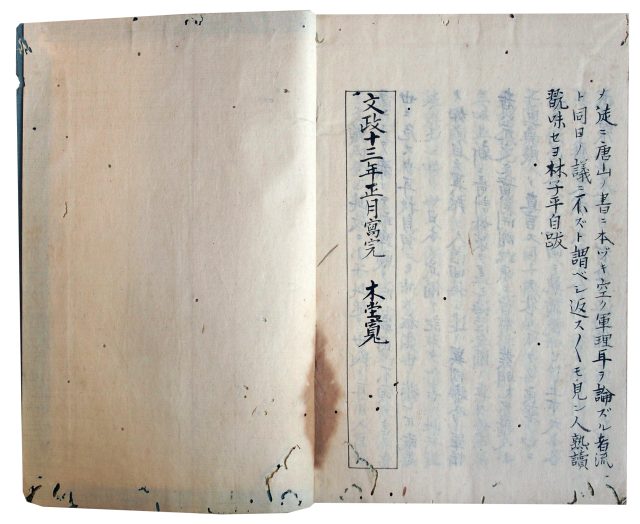 ノ徒ニ唐山ノ書ニ本ヅキ空ク軍理耳ヲ論ズル者流
ト同日ノ議ニ不ズト謂ベシ返ス〱モ見ン人熟讀
翫味セヨ林子平自跋
文政十三年正月寫完 木堂寛